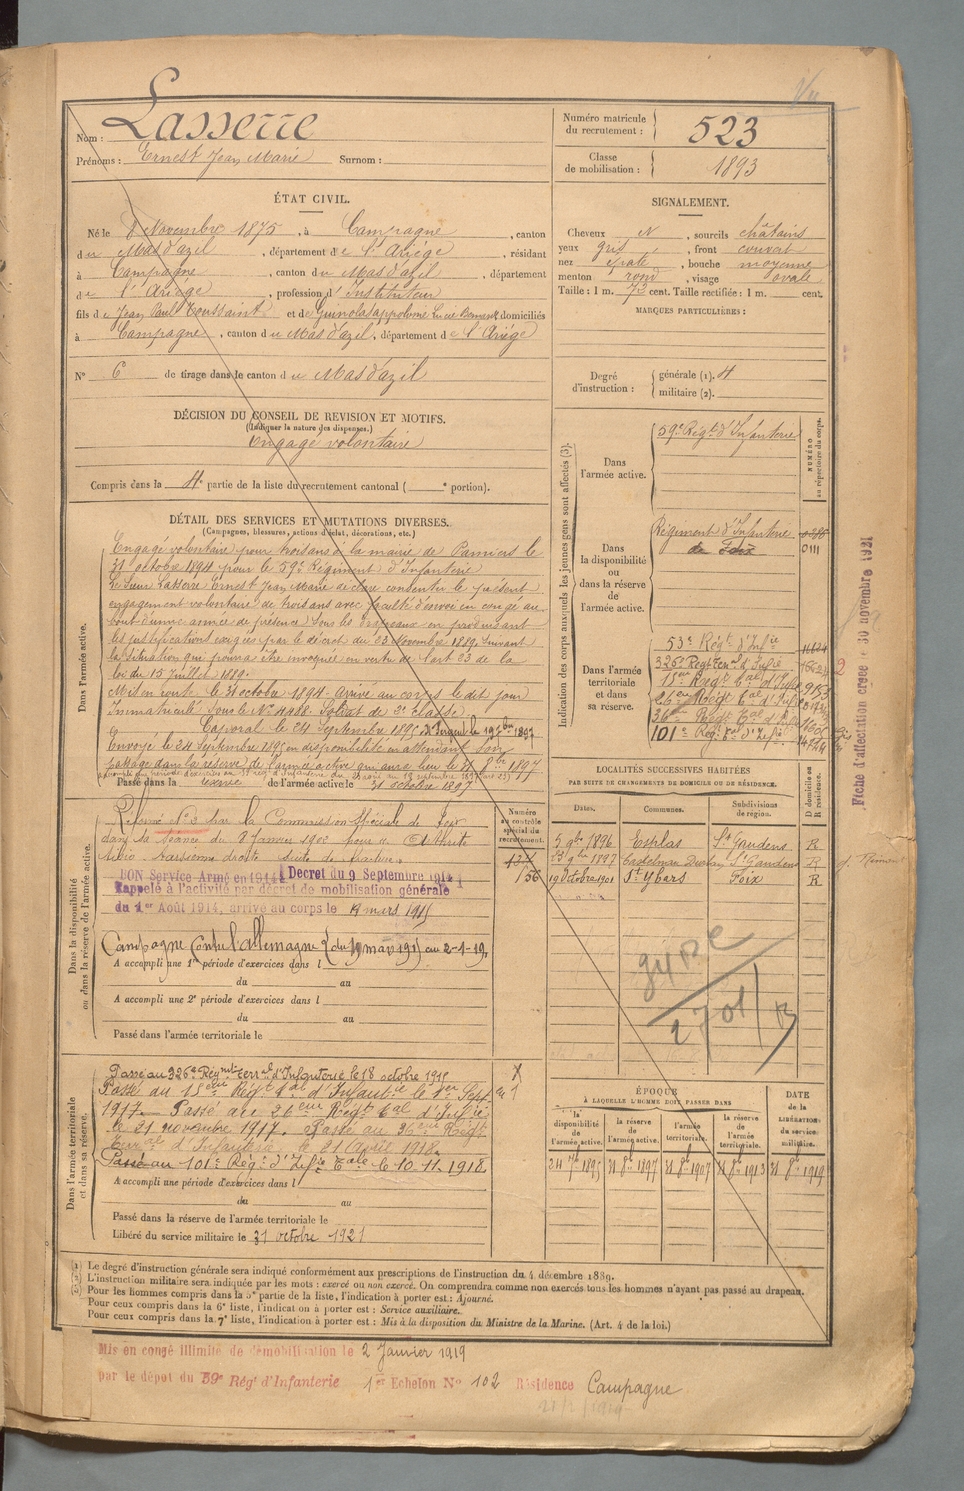 Nom : Lasserre
Prénoms : Ernest Jean Marie Surnom :
Numéro matricule du recrutement : 523
Classe de mobilisation : 1893
ÉTAT CIVIL.
Né le 8 Novembre 1875, à Campagne, canton
du Mas d'azil, département de l'Ariège, résidant
à Campagne, canton du Mas d'azil, département
de l'Ariège, profession d'Instituteur
fils de Jean Paul Toussaint et de domiciliés
à Campagne, canton du Mas d'azil, département de l'Ariège
N° 6 de tirage dans le canton du Mas d'azil
DÉCISION DU CONSEIL DE REVISION ET MOTIFS.
(Indiquer la nature des dispenses.)
Engagé volontaire
Compris dans la 4e partie de la liste du recrutement cantonal ( e portion).
SIGNALEMENT.
Cheveux N, sourcils châtains
yeux gris, front couvert
nez épaté, bouche moyenne
menton rond, visage ovale
Taille : 1 m. 73 cent. Taille rectifiée : 1 m. cent.
MARQUES PARTICULIÈRES :
Degré d'instruction : générale (1). 4
militaire (2).
DÉTAIL DES SERVICES ET MUTATIONS DIVERSES.
(Campagnes, blessures, actions d'éclat, décorations, etc.)
Dans l'armée active.
Engagé volontaire pour trois ans à la mairie de Pamiers le
31 octobre 1894 pour le 59e Régiment d'Infanterie
Le Sieur Lasserre Ernest Jean Marie déclare consentir le présent
engagement volontaire de trois ans avec faculté d'envoi en congé au
bout d'une année de présence sous les drapeaux en produisant
les justifications exigées par le décret du 23 Novembre 1889, suivant
la situation qui pourra être invoquée en vertu de l'art 23 de la
loi du 15 juillet 1889.
Mis en route le 31 octobre 1894. Arrivé au corps le dit jour
Immatriculé sous le N° 4488. Soldat de 2e classe
Caporal le 24 Septembre 1895. Sergent le 1897
Envoyé le 24 Septembre 1895 en disponibilité en attendant son
passage dans la réserve de l'armée active qui aura lieu le 31 8bre 1897
Passé dans la réserve de l'armée active le 31 octobre 1897
Dans la disponibilité ou dans la réserve de l'armée active.
Réformé N° 2 par la Commission Spéciale de Foix
dans sa séance du 8 Janvier 1902 pour Arthrite
tibio-tarsienne droite suite de fracture
BON Service Armé en 1914 Décret du 9 Septembre 1914
Rappelé à l'activité par décret de mobilisation générale
du 1er Août 1914, arrivé au corps le 19 mars 1915
Campagne contre l'allemagne (du 19 mars 1915 au 2-1-19)
A accompli une 1re période d'exercices dans l
du au
A accompli une 2e période d'exercices dans l
du au
Passé dans l'armée territoriale le
Numéro au contrôle spécial du recrutement.
56
Dans l'armée territoriale et dans sa réserve.
Passé au 326e Régiment terral d'Infanterie le 18 octobre 1915
Passé au 15eme Régt tal d'Infanterie le 1er Sept
1917. Passé au 26eme Régt tal d'Infie
le 21 novembre 1917. Passé au 36eme Régt
terral d'Infanterie le 21 Avril 1918.
Passé au 101e Régt d'Infie tale le 10.11.1918.
A accompli une période d'exercices dans l
du au
Passé dans la réserve de l'armée territoriale le
Libéré du service militaire le 31 octobre 1921
Indication des corps auxquels les jeunes gens sont affectés (3).
NUMÉRO au répertoire du corps.
Dans l'armée active. 59e Régt d'Infanterie
Dans la disponibilité ou dans la réserve de l'armée active. Régiment d'Infanterie
de Foix
0111
Dans l'armée territoriale et dans sa réserve. 53e Régt d'Infie
326e Régt terral d'Infie
15eme Régt tal d'Infie 9153
26eme Régt tal d'Infie
36eme Régt tal d'Infie
101e Régt tal d'Infie
LOCALITÉS SUCCESSIVES HABITÉES
PAR SUITE DE CHANGEMENTS DE DOMICILE OU DE RÉSIDENCE.
Dates. Communes. Subdivisions de région. D domicile ou R résidence.
5 9bre 1896 Esplas St Gaudens R
9bre 1897 Castelnau St Gaudens R
19 Octobre 1901 St Ybars Foix R
2701
ÉPOQUE
À LAQUELLE L'HOMME DOIT PASSER DANS
la disponibilité de l'armée active. la réserve de l'armée active. l'armée territoriale. la réserve de l'armée territoriale. DATE de la LIBÉRATION du service militaire.
24 7bre 1895 31 8bre 1897 31 8bre 1907 31 8bre 1913 31 8bre 1919
Fiche d'affectation créée le 30 novembre 1921
(1) Le degré d'instruction générale sera indiqué conformément aux prescriptions de l'instruction du 4 décembre 1889.
(2) L'instruction militaire sera indiquée par les mots : exercé ou non exercé. On comprendra comme non exercés tous les hommes n'ayant pas passé au drapeau.
(3) Pour les hommes compris dans la 5e partie de la liste, l'indication à porter est : Ajourné.
Pour ceux compris dans la 6e liste, l'indication à porter est : Service auxiliaire.
Pour ceux compris dans la 7e liste, l'indication à porter est : Mis à la disposition du Ministre de la Marine. (Art. 4 de la loi.)
Mis en congé illimité de démobilisation le 2 Janvier 1919
par le dépôt du 59e Régt d'Infanterie 1er Echelon N° 102 Résidence Campagne